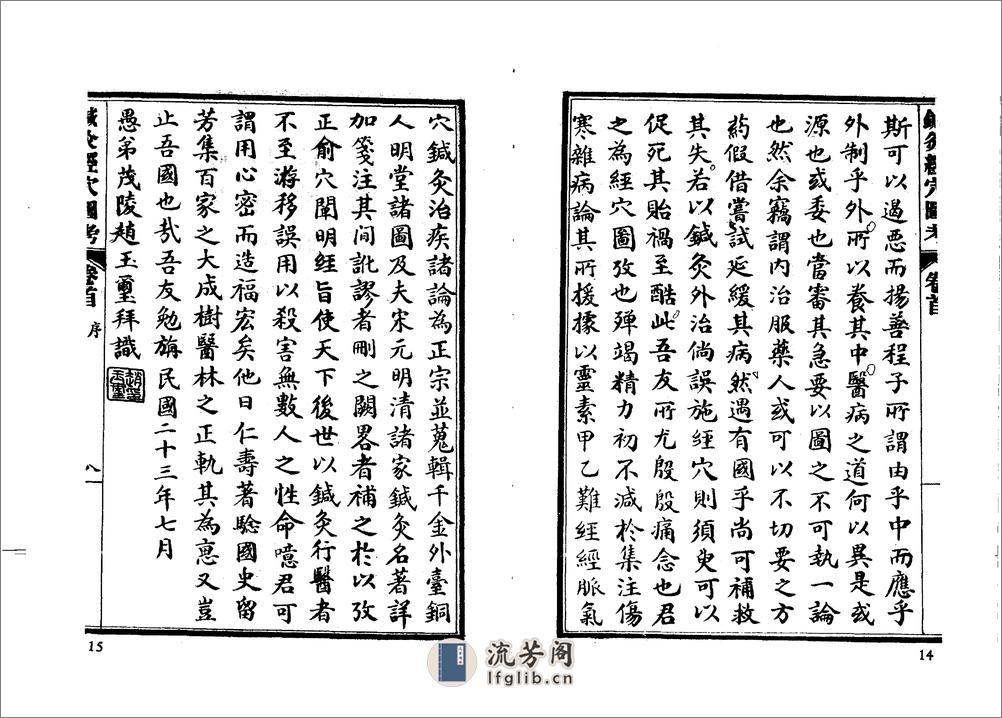 鍼灸經穴圖考
卷首
斯可以遏惡而揚善程子所謂由乎中而應乎
外制乎外所以養其中醫病之道何以異是或
源也或委也當審其急要以圖之不可執一論
也然余竊謂内治服藥人或可以不切要之方
葯假借嘗試延緩其病然遇有國手尚可補救
其失若以鍼灸外治倘誤施經穴則須臾可以
促死其貽禍至酷此吾友所尤殷殷痛念也君
之為經穴圖攷也殫竭精力初不減於集注傷
寒雜病論其所援據以靈素甲乙難經經脈氣
14
穴鍼灸治疾諸論為正宗並蒐輯千金外臺銅
人明堂諸圖及夫宋元明清諸家鍼灸名著詳
加箋注其間訛謬者刪之闕畧者補之於以攷
正俞穴闡明經旨使天下後世以鍼灸行醫者
不至游移誤用以殺害無數人之性命噫君可
謂用心密而造福宏矣他日仁壽著騐國史留
芳集百家之大成樹醫林之正軌其為惠又豈
止吾國也哉吾友勉旃民國二十三年七月
愚弟茂陵趙玉璽拜識
趙玉璽
鍼灸經穴圖考
卷首
序
八
15
流芳阁
lfglib.cn